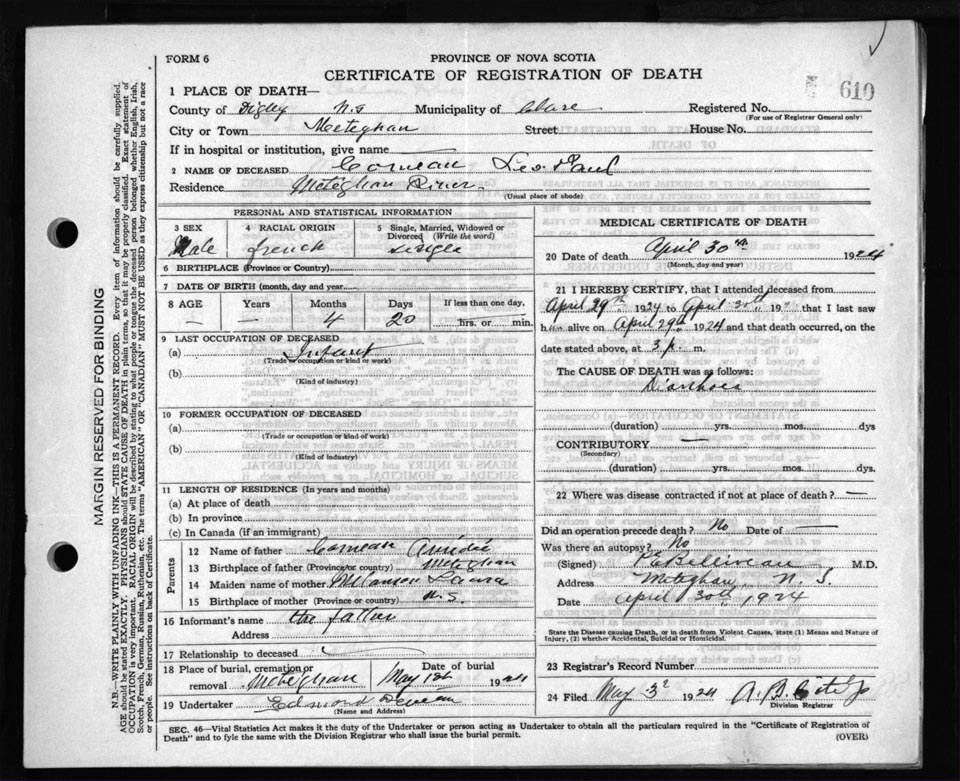 FORM 6
PROVINCE OF NOVA SCOTIA
CERTIFICATE OF REGISTRATION OF DEATH
610
1 PLACE OF DEATH—
County of Digby N.S Municipality of Clare Registered No.
(For use of Registrar General only)
City or Town Meteghan Street House No.
If in hospital or institution, give name
2 NAME OF DECEASED Comeau Leo Paul
Residence Meteghan River
(Usual place of abode)
PERSONAL AND STATISTICAL INFORMATION
3 SEX Male
4 RACIAL ORIGIN french
5 Single, Married, Widowed or Divorced (Write the word) single
6 BIRTHPLACE (Province or Country)
7 DATE OF BIRTH (month, day and year)
8 AGE Years Months Days If less than one day,
— — 4 20 hrs. or min.
9 LAST OCCUPATION OF DECEASED
(a) Infant
(Trade or occupation or kind of work)
(b)
(Kind of industry)
10 FORMER OCCUPATION OF DECEASED
(a)
(Trade or occupation or kind of work)
(b)
(Kind of industry)
11 LENGTH OF RESIDENCE (In years and months)
(a) At place of death
(b) In province
(c) In Canada (if an immigrant)
Parents
12 Name of father Comeau
13 Birthplace of father (Province or country) Meteghan
14 Maiden name of mother Laura
15 Birthplace of mother (Province or country) N.S.
16 Informant's name the father
Address
17 Relationship to deceased
18 Place of burial, cremation or removal Meteghan Date of burial May 1st 1924
19 Undertaker Edmond Comeau
(Name and Address)
MEDICAL CERTIFICATE OF DEATH
20 Date of death April 30th 1924
(Month, day and year)
21 I HEREBY CERTIFY, that I attended deceased from
April 29th 1924 to April 30th 19 that I last saw
h alive on April 29th 1924 and that death occurred, on the
date stated above, at 3 p. m.
The CAUSE OF DEATH was as follows:
Diarrhoea
(duration) yrs. mos. dys
CONTRIBUTORY —
(Secondary)
(duration) yrs. mos. dys.
22 Where was disease contracted if not at place of death? —
Did an operation precede death? No Date of —
Was there an autopsy? No
(Signed) Belliveau M.D.
Address Meteghan, N. S.
Date April 30th, 1924
State the Disease causing Death, or in death from Violent Causes, state (1) Means and Nature of
Injury, (2) whether Accidental, Suicidal or Homicidal.
23 Registrar's Record Number
24 Filed May 3 1924 A. B.
Division Registrar
SEC. 46—Vital Statistics Act makes it the duty of the Undertaker or person acting as Undertaker to obtain all the particulars required in the "Certificate of Registration of
Death" and to fyle the same with the Division Registrar who shall issue the burial permit. (OVER)
MARGIN RESERVED FOR BINDING
N.B.—WRITE PLAINLY WITH UNFADING INK—THIS IS A PERMANENT RECORD. Every item of information should be carefully supplied.
AGE should be stated EXACTLY. PHYSICIANS should STATE CAUSE OF DEATH in plain terms, so that it may be properly classified. Exact statement of
OCCUPATION is very important. RACIAL ORIGIN will be described by stating to what people or tongue the deceased person belonged whether English, Irish,
Scotch, French, German, Russian, Ruthenian, etc. The terms "AMERICAN" OR "CANADIAN" MUST NOT BE USED as they express citizenship but not a race
or people. See instructions on back of Certificate.